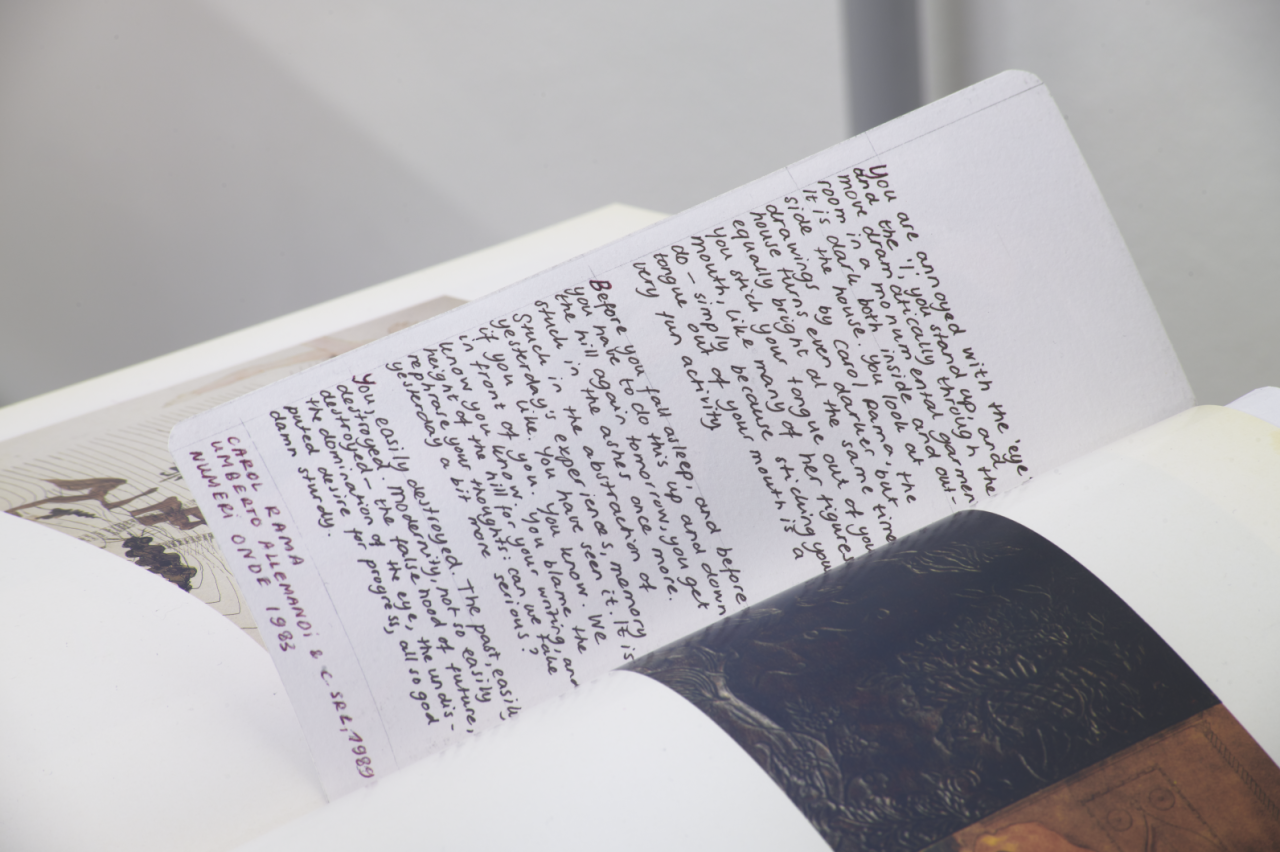 You are annoyed with the 'eye'
and the 'I', you stand up, and
move dramatically through the
room in a monumental garment.
It is dark both inside and out-
side the house. You look at the
drawings by Carol Rama, but the
house turns even darker
equally bright at the same time
you stick your tongue out of your
mouth, like many of her figures
do – simply because sticking your
tongue out of your mouth is a
very fun activity
Before you fall asleep, and before
you have to do this up and down
the hill again tomorrow, you get
stuck in the ashes once more.
Stuck in the abstraction of
yesterday's experiences, memory
like. You have seen it. It is
in front of you. You know. We
know you know. You blame the
height of the hill for your writing, and
rephrase your thoughts: can we take
yesterday a bit more serious?
You, easily destroyed. The past, easily
destroyed. Modernity, not so easily
destroyed – the falsehood of future,
the domination of the eye, the undis-
puted desire for progress, all so god
damn sturdy.
CAROL RAMA
UMBERTO ALLEMANDI & C SRL, 1989
NUMERI ONDE 1983